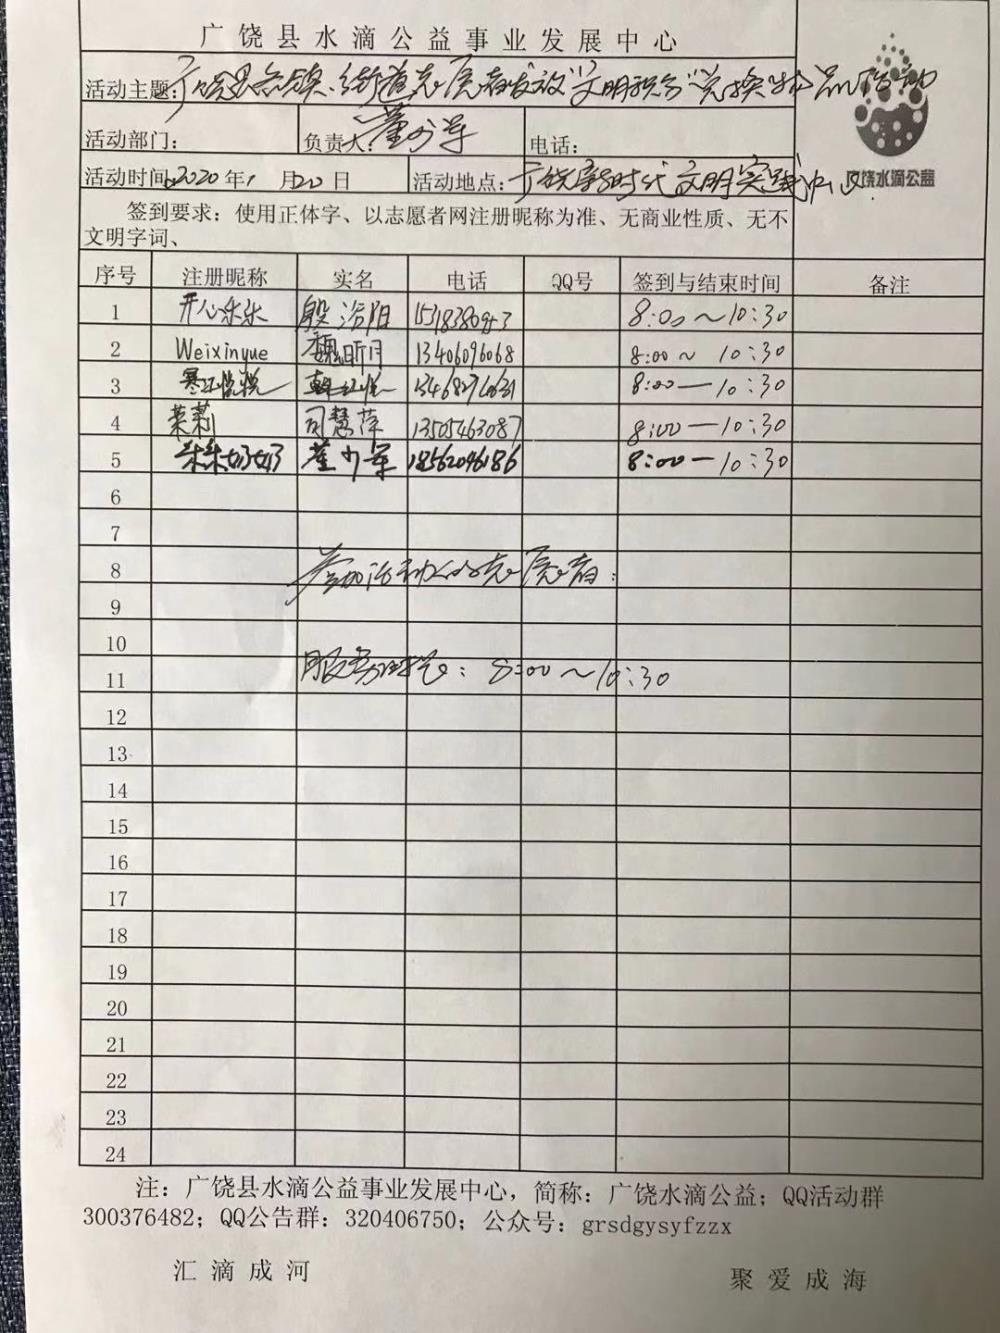 广饶县水滴公益事业发展中心
活动主题：广饶县各镇、街道志愿者发放"文明积分"兑换物品活动
活动部门： 负责人： 电话：
活动时间：2020年1月20日 活动地点：广饶新时代文明实践中心
广饶水滴公益
签到要求：使用正体字、以志愿者网注册昵称为准、无商业性质、无不
文明字词、
序号 注册昵称 实名 电话 QQ号 签到与结束时间 备注
1 开心乐乐 殷 阳 8:00～10:30
2 Weixinyue 魏昕月 13406096068 8:00～10:30
3 8:00—10:30
4 茉莉 司慧萍 13505463087 8:00—10:30
5 朵朵妈妈 18562046186 8:00—10:30
6
7
8 参加活动的志愿者：
9
10
11 服务时长：8:00～10:30
12
13
14
15
16
17
18
19
20
21
22
23
24
注：广饶县水滴公益事业发展中心，简称：广饶水滴公益；QQ活动群
300376482；QQ公告群：320406750；公众号：grsdgysyfzzx
汇滴成河 聚爱成海